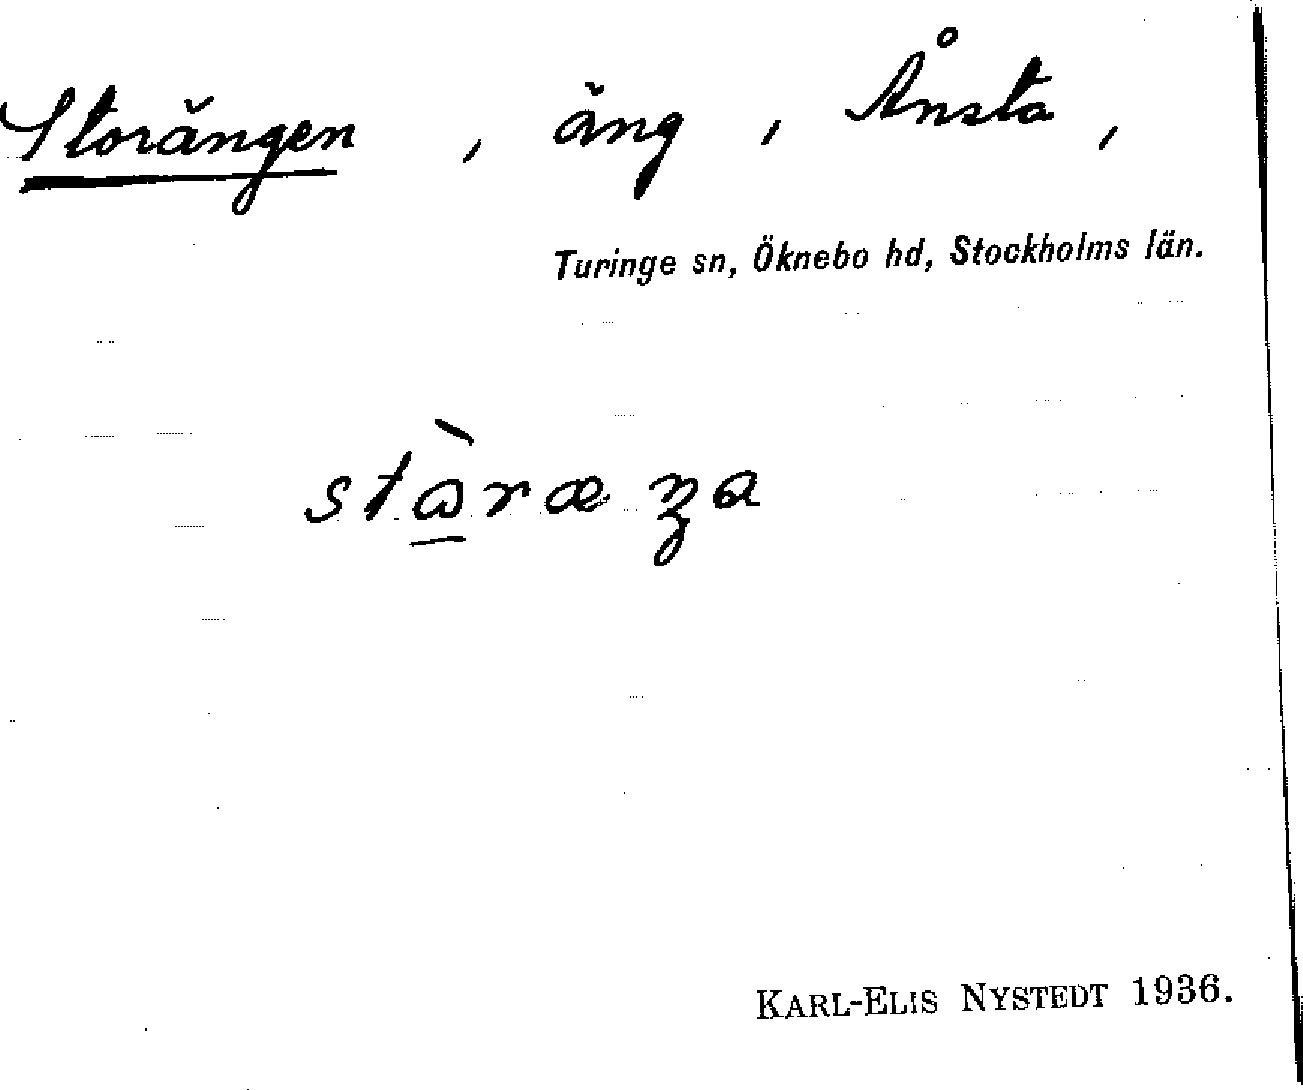 Storängen, äng, Ånsta,
Turinge sn, Öknebo hd, Stockholms län.
KARL-ELIS NYSTEDT 1936.